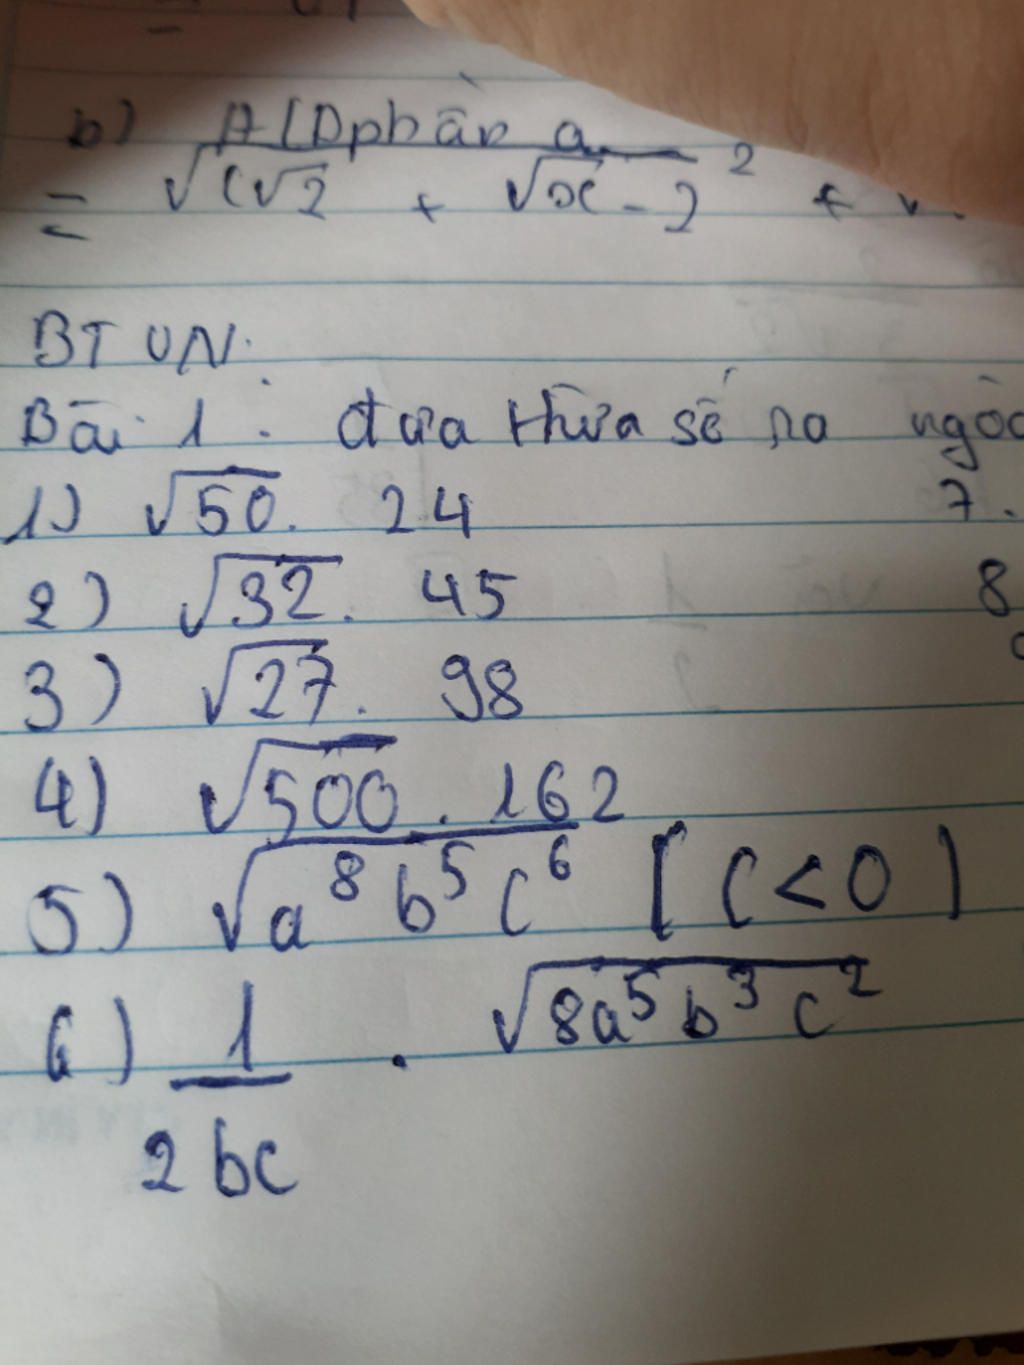 b) ALD phần a
= √(√2 + √x - 2 ² +
BT VN.
Bài 1 : đưa thừa số ra
1) √50. 24 7.
2) √32. 45 8
3) √27. 98
4) √500. 162
5) √a⁸b⁵c⁶ [C<0]
6) 1 . √8a⁵b³c²
2bc